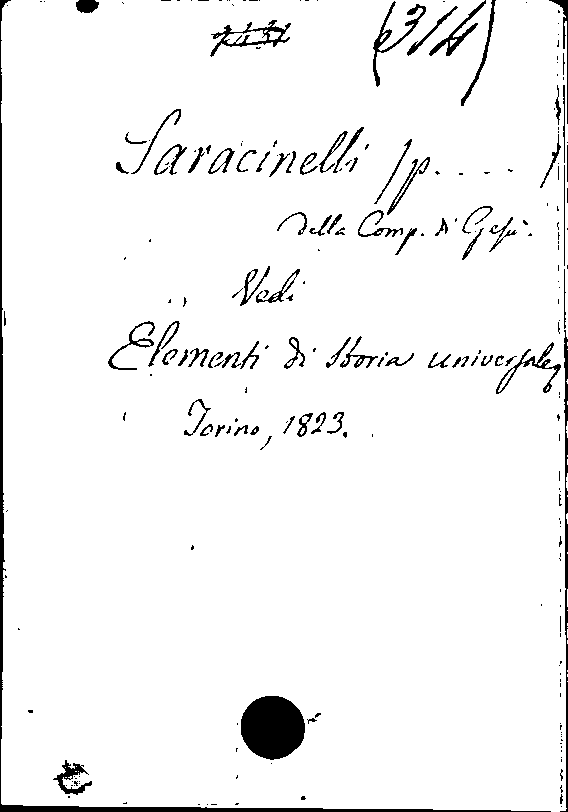 (314)
Saracinelli (p. . . . . )
della Comp. di Gesù.
Vedi
Elementi di Storia universale,
Torino, 1823.